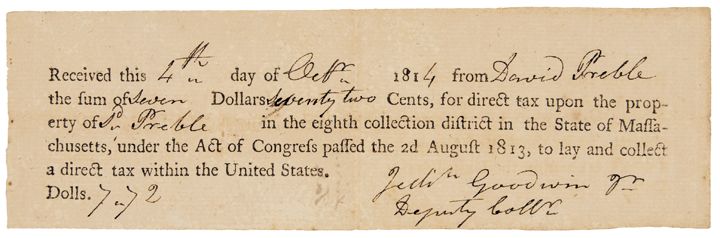 Received this 4th day of Octr 1814 from David Preble
the sum of seven Dollars seventy two Cents, for direct tax upon the prop-
erty of Dd Preble in the eighth collection district in the State of Maſſa-
chusetts, under the Act of Congreſs paſſed the 2d Auguſt 1813, to lay and collect
a direct tax within the United States.
Dolls. 7,,72 Jedih Goodwin Jr
Deputy Collr